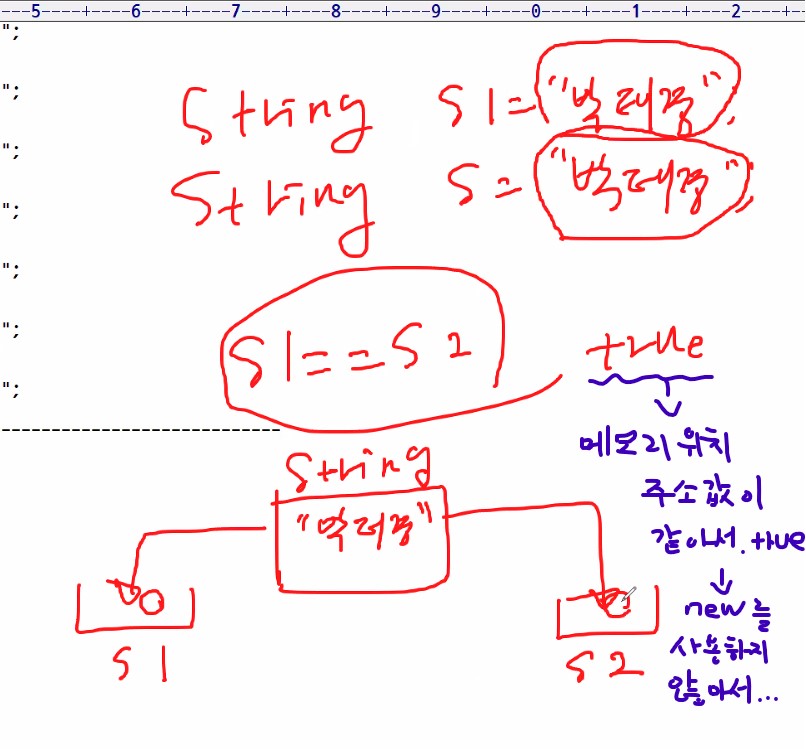 5 6 7 8 9 0 1 2
";
";
";
";
";
";
";
String S1="박태중"
String S="박태중"
S1==S2
true
메모리 위치
주소값이
같아서. true
new를
사용하지
않아서...
String
"박태중"
S1
S2